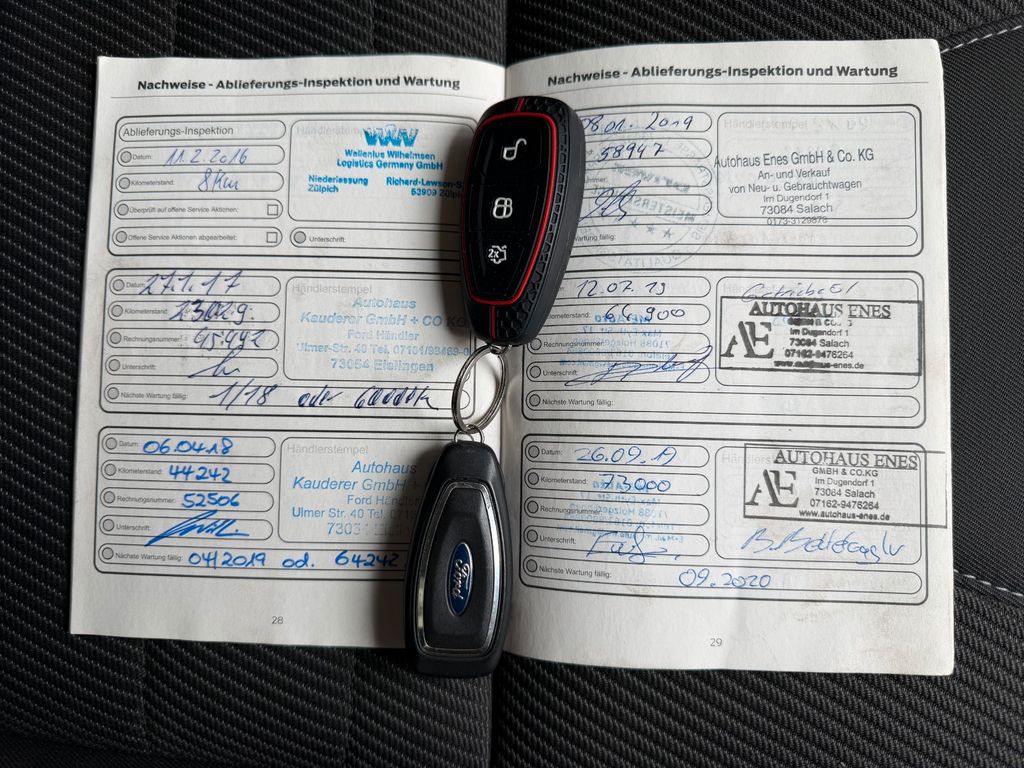 Nachweise - Ablieferungs-Inspektion und Wartung
Ablieferungs-Inspektion
Datum: 11.2.2016
Kilometerstand: 8 Km
Überprüft auf offene Service Aktionen:
Offene Service Aktionen abgearbeitet:
Händlerstempel
WWW
Wallenius Wilhelmsen
Logistics Germany GmbH
Niederlassung Richard-Lawson-S
Zülpich 53909 Zülp
Unterschrift:
Datum: 27.1.17
Kilometerstand: 23029.
Rechnungsnummer: 45492
Unterschrift:
Nächste Wartung fällig: 1/18 oder 60000k
Händlerstempel
Autohaus
Kauderer GmbH + CO KG
Ford Händler
Ulmer-Str. 40 Tel. 07161/98469-0
73054 Eislingen
Datum: 06.04.18
Kilometerstand: 44242
Rechnungsnummer: 52506
Unterschrift:
Nächste Wartung fällig: 04/2019 od. 64242
Händlerstempel
Autohaus
Kauderer GmbH +
Ford Händler
Ulmer Str. 40 Tel. 07
28
Nachweise - Ablieferungs-Inspektion und Wartung
08.01.2019
58947
fällig:
Händlerstempel
Autohaus Enes GmbH & Co. KG
An- und Verkauf
von Neu- u. Gebrauchtwagen
Im Dugendorf 1
73084 Salach
0173-3129876
12.07.19
Kilometerstand: 64.900
Rechnungsnummer:
Unterschrift:
Nächste Wartung fällig:
Getriebeöl
AUTOHAUS ENES
GMBH & CO.
AE
Im Dugendorf 1
73084 Salach
07162-9476264
www.autohaus-enes.de
Datum: 26.09.19
Kilometerstand: 73000
Rechnungsnummer:
Unterschrift:
Nächste Wartung fällig: 09.2020
AUTOHAUS ENES
GMBH & CO.KG
AE
Im Dugendorf 1
73084 Salach
07162-9476264
www.autohaus-enes.de
29
2x
Ford